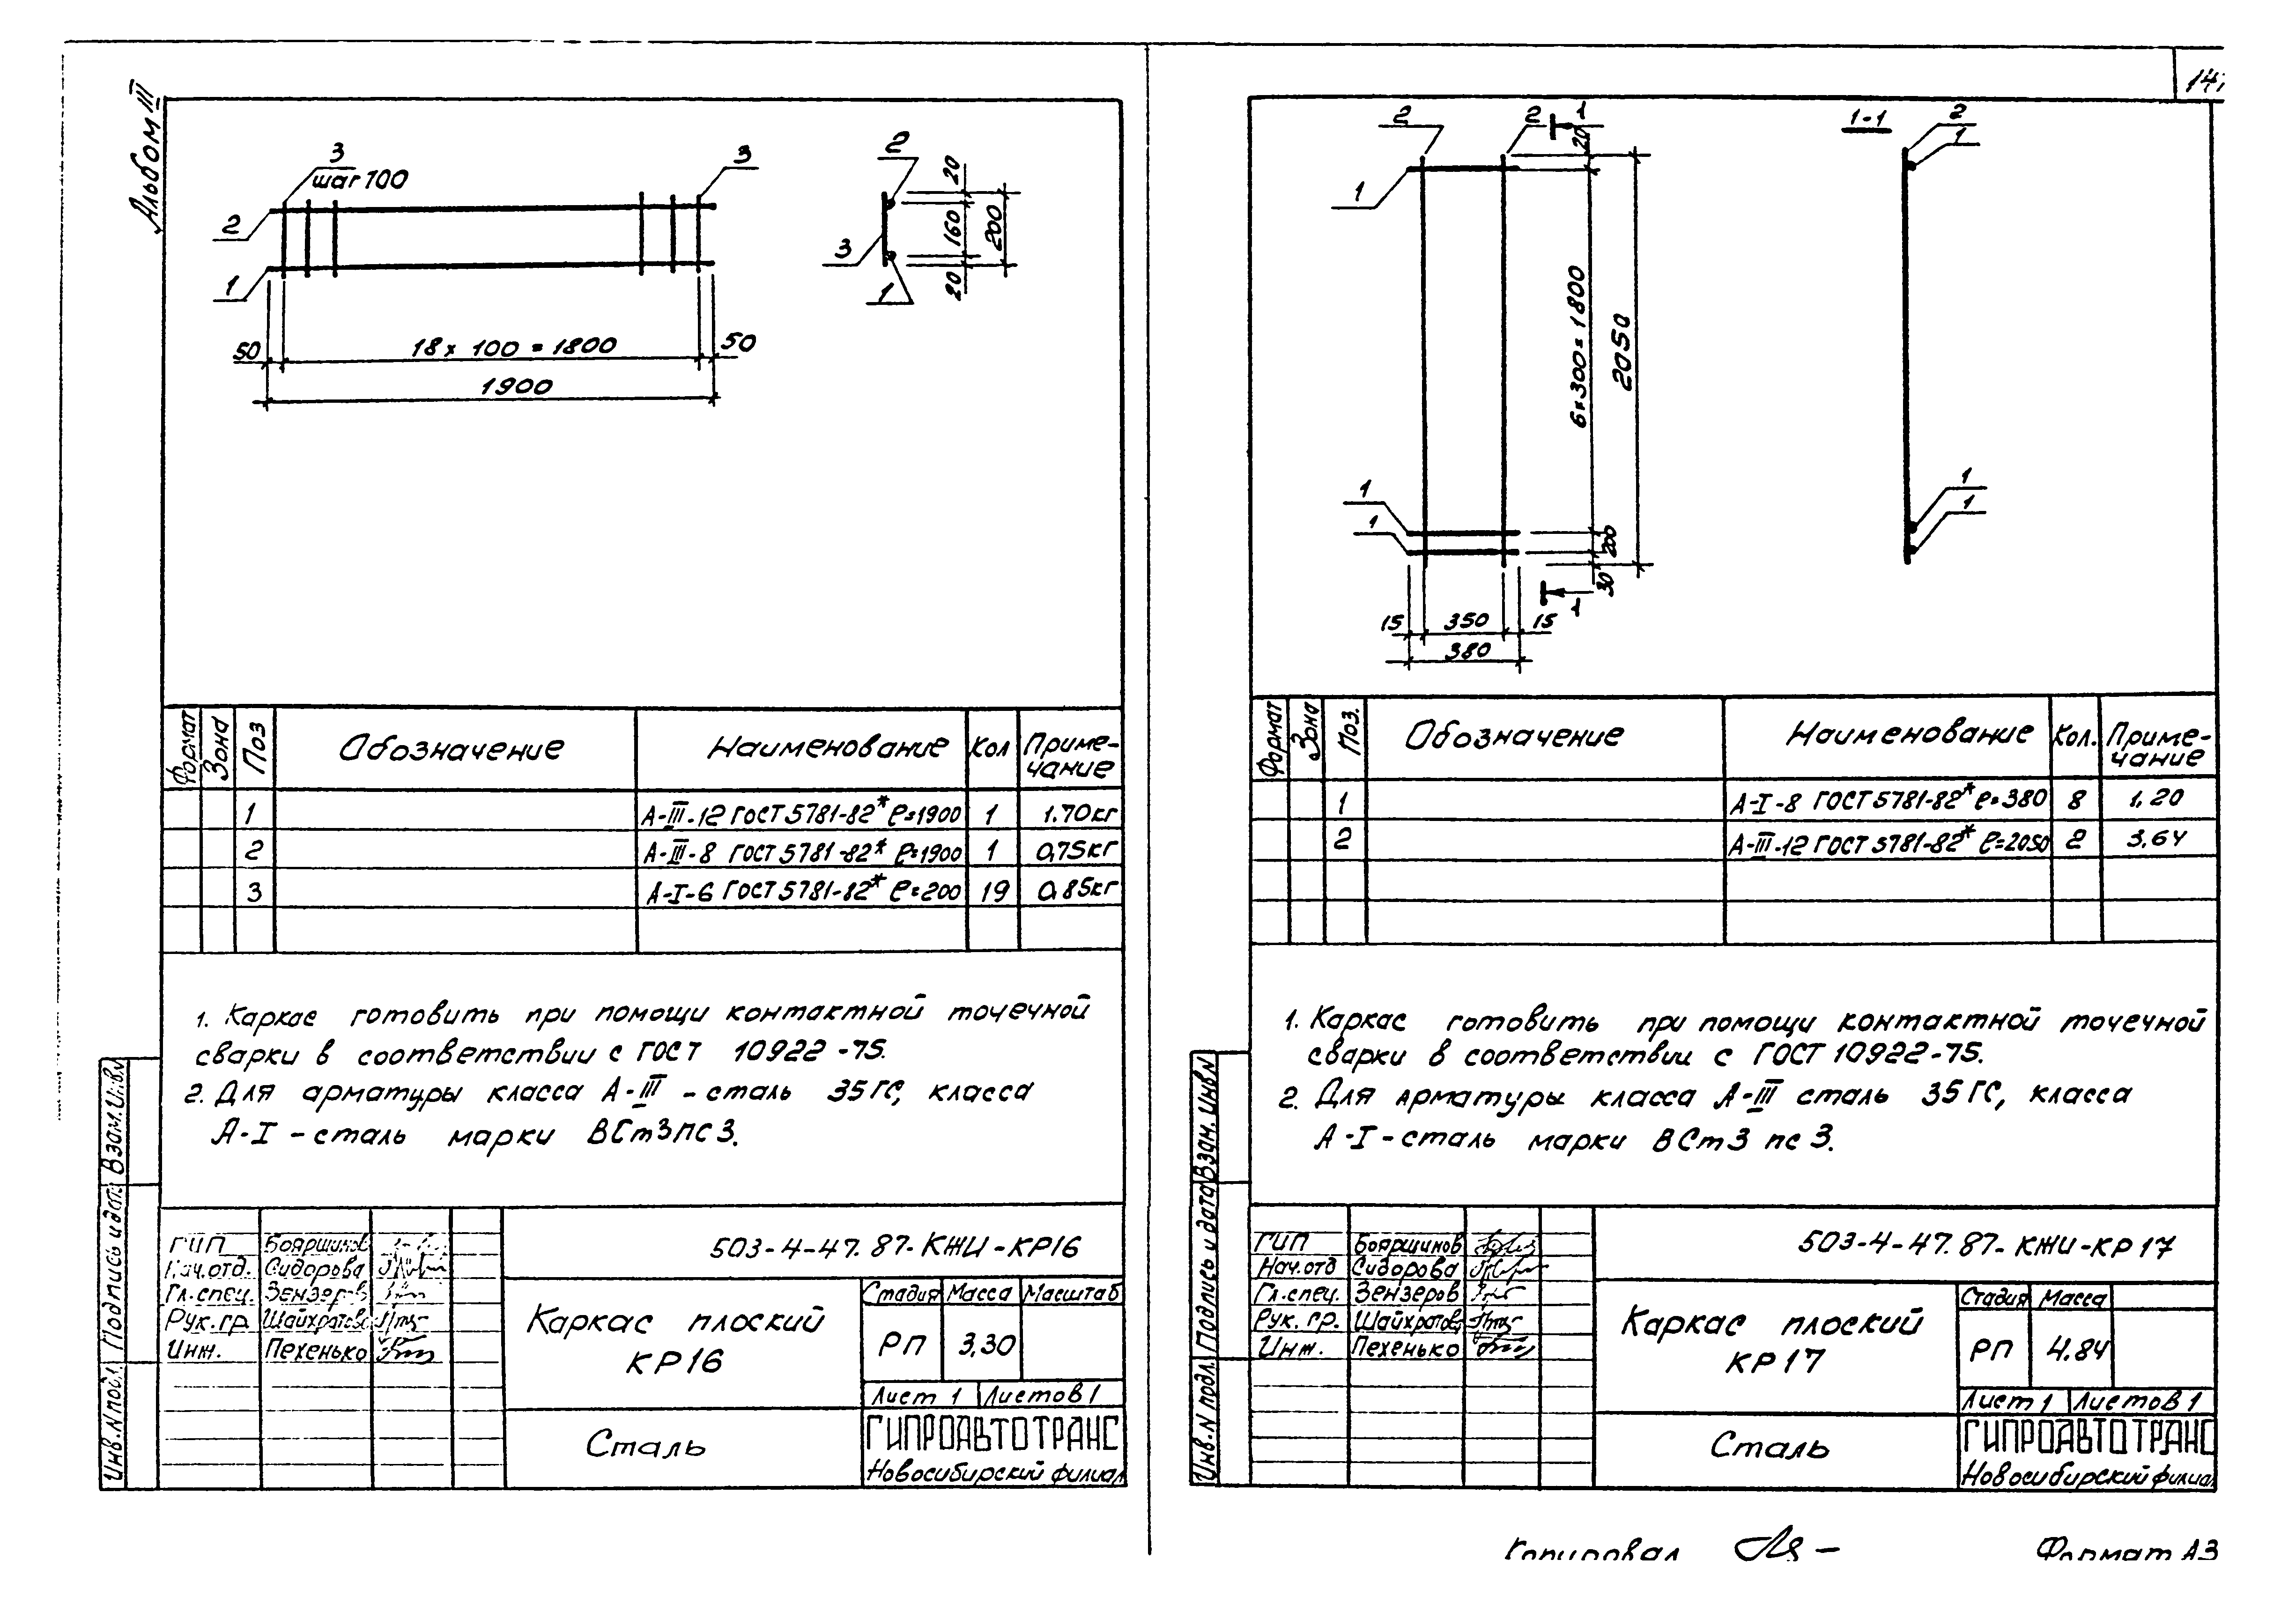 Альбом III
3
шаг 100
3
2
1
50
18 х 100 = 1800
50
1900
2
3
1
20
160
20
200
Формат
Зона
Поз
Обозначение
Наименование
Кол
Приме-
чание
1 А-III-12 ГОСТ 5781-82* ℓ=1900 1 1.70кг
2 А-III-8 ГОСТ 5781-82* ℓ=1900 1 0,75кг
3 А-I-6 ГОСТ 5781-82* ℓ=200 19 0,85кг
1. Каркас готовить при помощи контактной точечной
сварки в соответствии с ГОСТ 10922-75.
2. Для арматуры класса А-III - сталь 35ГС, класса
А-I - сталь марки ВСт3пс3.
Взам.Инв.N
Подпись и дата
Инв.N подл.
ГИП Бояршинов
Нач.отд. Сидорова
Гл.спец. Зензеров
Рук.гр. Шайхратова
Инж. Пехенько
503-4-47.87-КЖИ-КР16
Каркас плоский
КР16
Стадия Масса Масштаб
РП 3,30
Лист 1 Листов 1
Сталь
ГИПРОАВТОТРАНС
Новосибирский филиал
147
2
2
1
1
1
1
20
6х300=1800
2050
200
30
1
15
350
15
380
1-1
2
1
1
1
Формат
Зона
Поз.
Обозначение
Наименование
Кол.
Приме-
чание
1 А-I-8 ГОСТ 5781-82* ℓ=380 8 1,20
2 А-III-12 ГОСТ 5781-82* ℓ=2050 2 3,64
1. Каркас готовить при помощи контактной точечной
сварки в соответствии с ГОСТ 10922-75.
2. Для арматуры класса А-III сталь 35ГС, класса
А-I-сталь марки ВСт3 пс 3.
Взам. инв.N
Подпись и дата
Инв.N подл.
ГИП Бояршинов
Нач.отд Сидорова
Гл.спец. Зензеров
Рук. гр. Шайхратова
Инж. Пехенько
503-4-47.87-КЖИ-КР17
Каркас плоский
КР17
Стадия Масса
РП 4.84
Лист 1 Листов 1
Сталь
ГИПРОАВТОТРАНС
Новосибирский филиал
Копировал
Формат А3